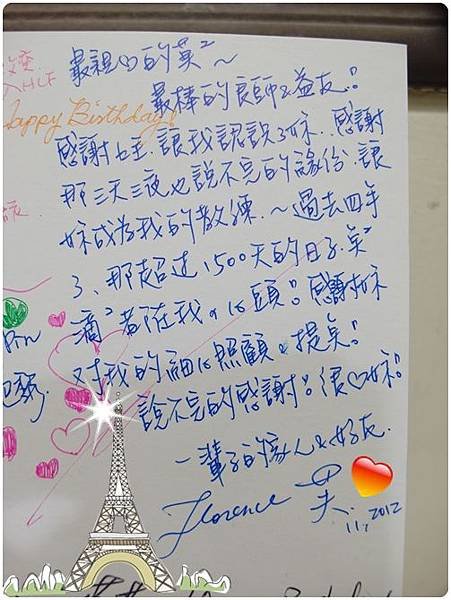 最親♡的英²~
最棒的良師&益友!
Happy Birthday!
感謝主,讓我認識了妳..感謝
那三天三夜也說不完的緣份.讓
妳成為我的教練.~過去四年
了、那超過1,500天的日子.點²
滴²都在我的心頭!感謝妳
對我的細心照顧&提点!
說不完的感謝!很♡妳!
一輩子的家人&好友
Florence
11, 2012